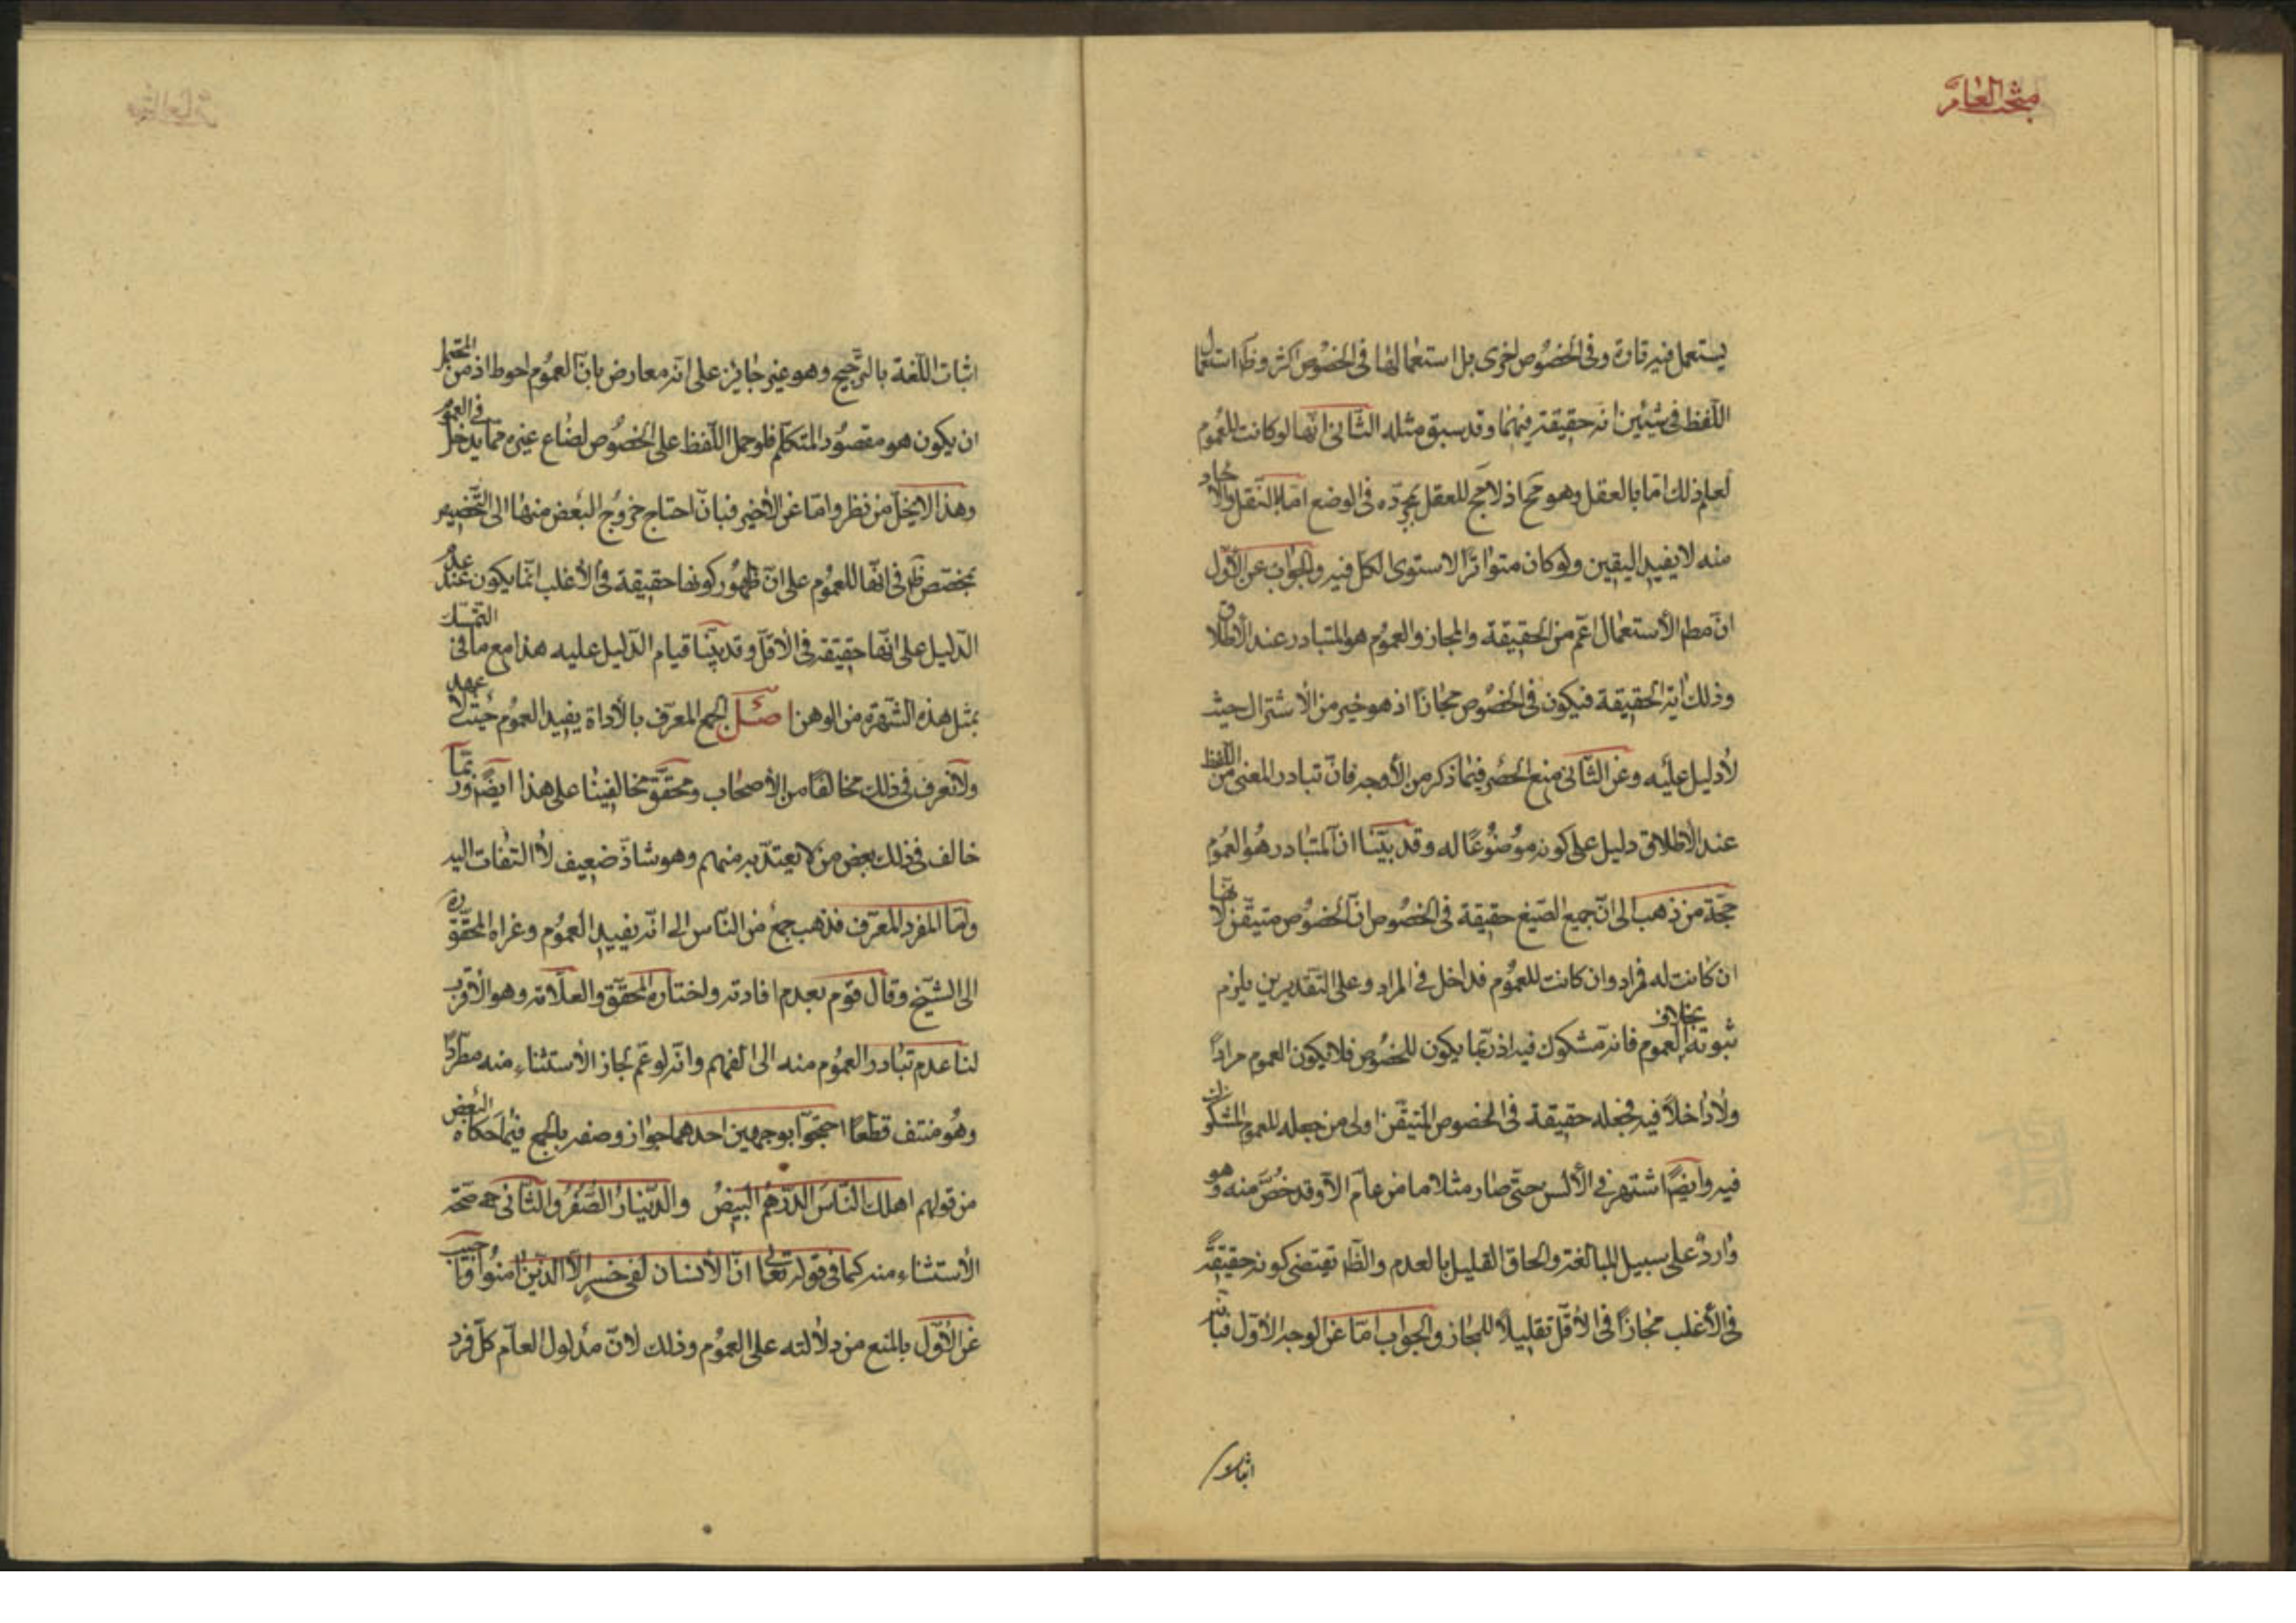 مبحث العام
يستعمل فيه تارة وفى الخصوص اخرى بل استعمالها فى الخصوص اكثر وظ استعمال
اللفظ فى شيئين انه حقيقة فيهما وقد سبق مثله الثانى انها لو كانت للعموم
لعلم ذلك اما بالعقل وهو مح اذ لا مج للعقل بمجرده فى الوضع اما بالنقل والآحاد
منه لا يفيد اليقين ولو كان متواترا لاستوى الكل فيه والجواب عن الاول
ان مطم الأستعمال اعم من الحقيقة والمجاز والعموم هو المتبادر عند الأطلاق
وذلك اية الحقيقة فيكون فى الخصوص مجازا اذ هو خير من الأشتراك حيث
لا دليل عليه وعن الثانى منع الحصر فيما ذكر من الأوجه فان تبادر المعنى من اللفظ
عند الأطلاق دليل على كونه موضوعا له وقد بينا ان المتبادر هو العموم
حجة من ذهب الى ان جميع الصيغ حقيقة فى الخصوص ان الخصوص متيقن لأنها
ان كانت له فمراد وان كانت للعموم فداخل فى المراد وعلى التقديرين يلزم
ثبوته بخلاف العموم فانه مشكوك فيه اذ ربما يكون للخصوص فلا يكون العموم مرادا
ولا داخلا فيه فجعله حقيقة فى الخصوص المتيقن اولى من جعله للعموم المشكوك
فيه وايضا اشتهر فى الألسن حتى صار مثلا ما من عام الا وقد خص منه وهو
وارد على سبيل المبالغة والحاق القليل بالعدم والظ يقتضى كونه حقيقة
فى الأغلب مجازا فى الأقل تقليلا للمجاز والجواب اما عن الوجه الأول فبانه
اثبات
اثبات اللغة بالترجيح وهو غير جايز على انه معارض بان العموم احوط اذ من المحتمل
ان يكون هو مقصود المتكلم فلو حمل اللفظ على الخصوص لضاع غيره مما يدخل فى العموم
وهذا لا يخل من نظر واما عن الأخير فبان احتاج خروج البعض منها الى التخصيص
بمخصص ظ فى انها للعموم على ان ظهور كونها حقيقة فى الأغلب انما يكون عند عدم
الدليل على انها حقيقة فى الأقل وقد بينا قيام الدليل عليه هذا مع ما فى التمسك
بمثل هذه الشهرة من الوهن اصل الجمع المعرف بالأداة يفيد العموم حيث لا عهد
ولا نعرف فى ذلك مخالفا من الأصحاب ومحققو مخالفينا على هذا ايضا وربما
خالف فى ذلك بعض من لا يعتد به منهم وهو شاذ ضعيف لا التفات اليه
واما المفرد المعرف فذهب جمع من الناس الى انه يفيد العموم وعزاه المحقق ره
الى الشيخ وقال قوم بعدم افادته واختاره المحقق والعلامة وهو الأقرب
لنا عدم تبادر العموم منه الى الفهم وانه لو عم لجاز الأستثناء منه مطردا
وهو منتف قطعا احتجوا بوجهين احدهما جواز وصفه بالجمع فيما حكاه البعض
من قولهم اهلك الناس الدرهم البيض والدينار الصفر والثانى صحة
الأستثناء منه كما فى قوله تعالى ان الأنسان لفى خسر الا الذين امنوا واجيب
عن الأول بالمنع من دلالته على العموم وذلك لان مدلول العام كل فرد